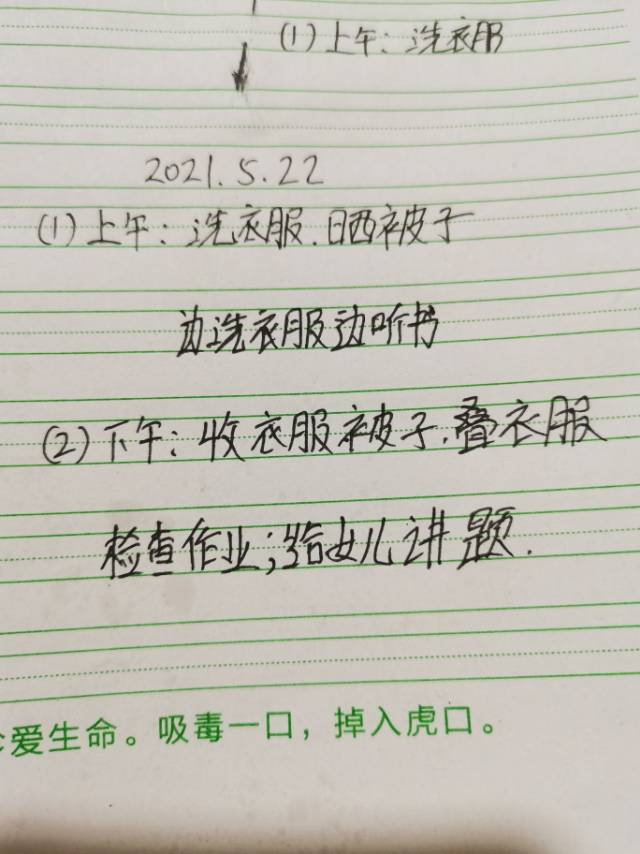 (1)上午：洗衣服
2021.5.22
(1)上午：洗衣服.晒被子
边洗衣服边听书
(2)下午：收衣服被子.叠衣服
检查作业;给女儿讲题.
爱生命。吸毒一口，掉入虎口。